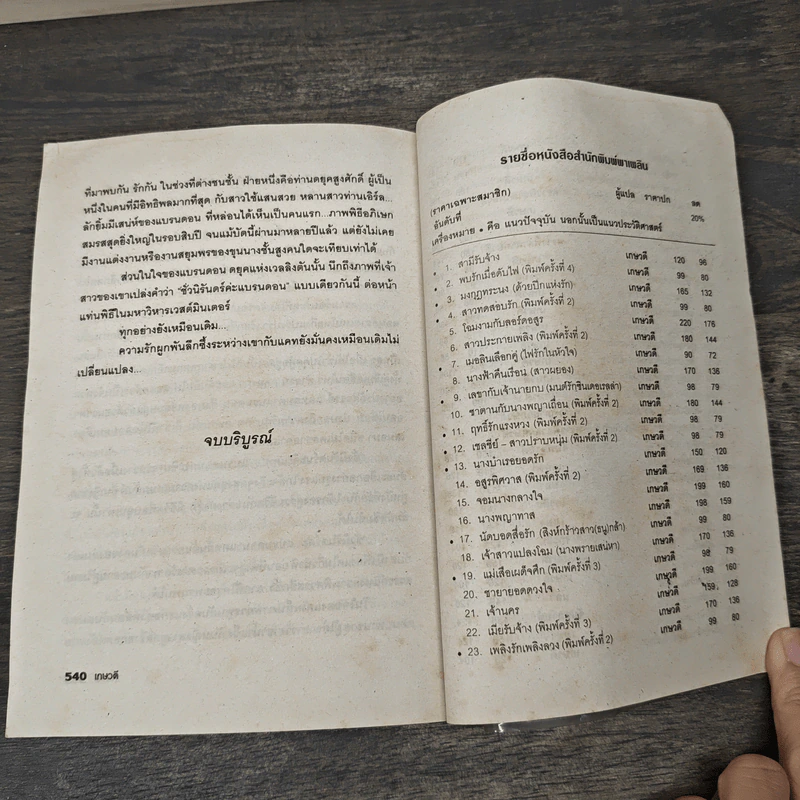 ที่มาพบกัน รักกัน ในช่วงที่ต่างชนชั้น ฝ่ายหนึ่งคือท่านดยุคสูงศักดิ์ ผู้เป็น
หนึ่งในคนที่มีอิทธิพลมากที่สุด กับสาวใช้แสนสวย หลานสาวท่านเอิร์ล...
ลักยิ้มมีเสน่ห์ของแบรนดอน ที่หล่อนได้เห็นเป็นคนแรก...ภาพพิธีอภิเษก
สมรสสุดยิ่งใหญ่ในรอบสิบปี จนแม้บัดนี้ผ่านมาหลายปีแล้ว แต่ยังไม่เคย
มีงานแต่งงานหรืองานสยุมพรของขุนนางชั้นสูงคนใดจะเทียบเท่าได้
ส่วนในใจของแบรนดอน ดยุคแห่งเวลลิงตันนั้น นึกถึงภาพที่เจ้า
สาวของเขาเปล่งคำว่า “ชั่วนิรันดร์ค่ะแบรนดอน” แบบเดียวกันนี้ ต่อหน้า
แท่นพิธีในมหาวิหารเวสต์มินเตอร์
ทุกอย่างยังเหมือนเดิม...
ความรักผูกพันลึกซึ้งระหว่างเขากับแคทยังมั่นคงเหมือนเดิมไม่
เปลี่ยนแปลง...
จบบริบูรณ์
540 เกษวดี
รายชื่อหนังสือสำนักพิมพ์พาเพลิน
(ราคาเฉพาะสมาชิก)
อันดับที่ ผู้แปล ราคาปก ลด 20%
เครื่องหมาย • คือ แนวปัจจุบัน นอกนั้นเป็นแนวประวัติศาสตร์
• 1. สามีรับจ้าง เกษวดี 120 96
• 2. พบรักเมื่อดับไฟ (พิมพ์ครั้งที่ 4) เกษวดี 99 80
• 3. มงกุฎทระนง (ด้วยปีกแห่งรัก) เกษวดี 165 132
• 4. สาวทดสอบรัก (พิมพ์ครั้งที่ 2) เกษวดี 99 80
5. โฉมงามกับลอร์ดอสูร เกษวดี 220 176
6. สาวประกายเพลิง (พิมพ์ครั้งที่ 2) เกษวดี 180 144
• 7. เมอลินเลือกคู่ (ไฟรักในหัวใจ) เกษวดี 90 72
8. นางฟ้าคืนเรือน (สาวผยอง) เกษวดี 170 136
• 9. เลขากับเจ้านายกบ (มนต์รักซินเดอเรลล่า) เกษวดี 98 79
10. ซาตานกับนางพญาเถื่อน (พิมพ์ครั้งที่ 2) เกษวดี 180 144
• 11. ฤทธิ์รักแรงหวง (พิมพ์ครั้งที่ 2) เกษวดี 98 79
• 12. เชลซีย์ - สาวปราบหนุ่ม (พิมพ์ครั้งที่ 2) เกษวดี 98 79
• 13. นางบำเรอยอดรัก เกษวดี 150 120
14. อสูรพิศวาส (พิมพ์ครั้งที่ 2) เกษวดี 169 136
15. จอมนางกลางใจ เกษวดี 199 160
16. นางพญาทาส เกษวดี 198 159
• 17. นัดบอดสื่อรัก (สิงห์กร้าวสาว(ธนู)กล้า) เกษวดี 99 80
18. เจ้าสาวแปลงโฉม (นางพรายเสน่หา) เกษวดี 170 136
• 19. แม่เสือเผด็จศึก (พิมพ์ครั้งที่ 3) เกษวดี 98 79
20. ชายายอดดวงใจ เกษวดี 199 160
21. เจ้านคร เกษวดี 159 128
22. เมียรับจ้าง (พิมพ์ครั้งที่ 3) เกษวดี 170 136
• 23. เพลิงรักเพลิงลวง (พิมพ์ครั้งที่ 2) เกษวดี 99 80